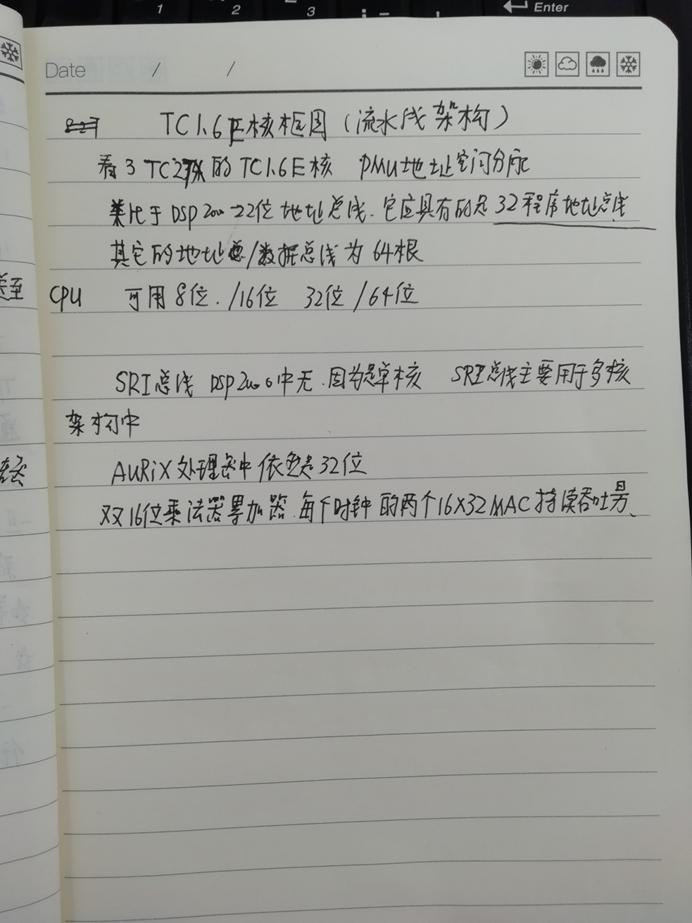 1 2 3 Enter
Date / /
TC1.6E核框图（流水线架构）
看了TC27X的TC1.6E核 PMU地址空间分配
类比于DSP2000 22位地址总线．它应具有的是32程序地址总线
其它的地址/数据总线为64根
CPU 可用8位./16位 32位/64位
SRI总线 DSP2000中无.因为是单核 SRI总线主要用于多核
架构中
AURIX处理器中依然是32位
双16位乘法器累加器.每个时钟的两个16X32MAC持续吞吐量.